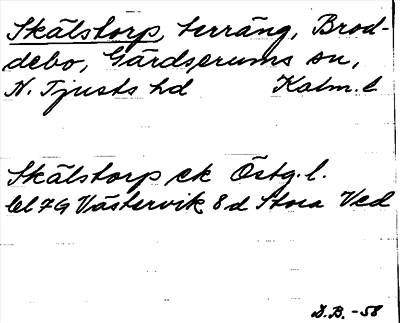 Skälstorp, terräng, Brod-
debo, Gärdserums sn,
N. Tjusts hd Kalm. l
Skälstorp ek Östg. l.
bl 7G Västervik 8 d Stora Ved
D.B. -58